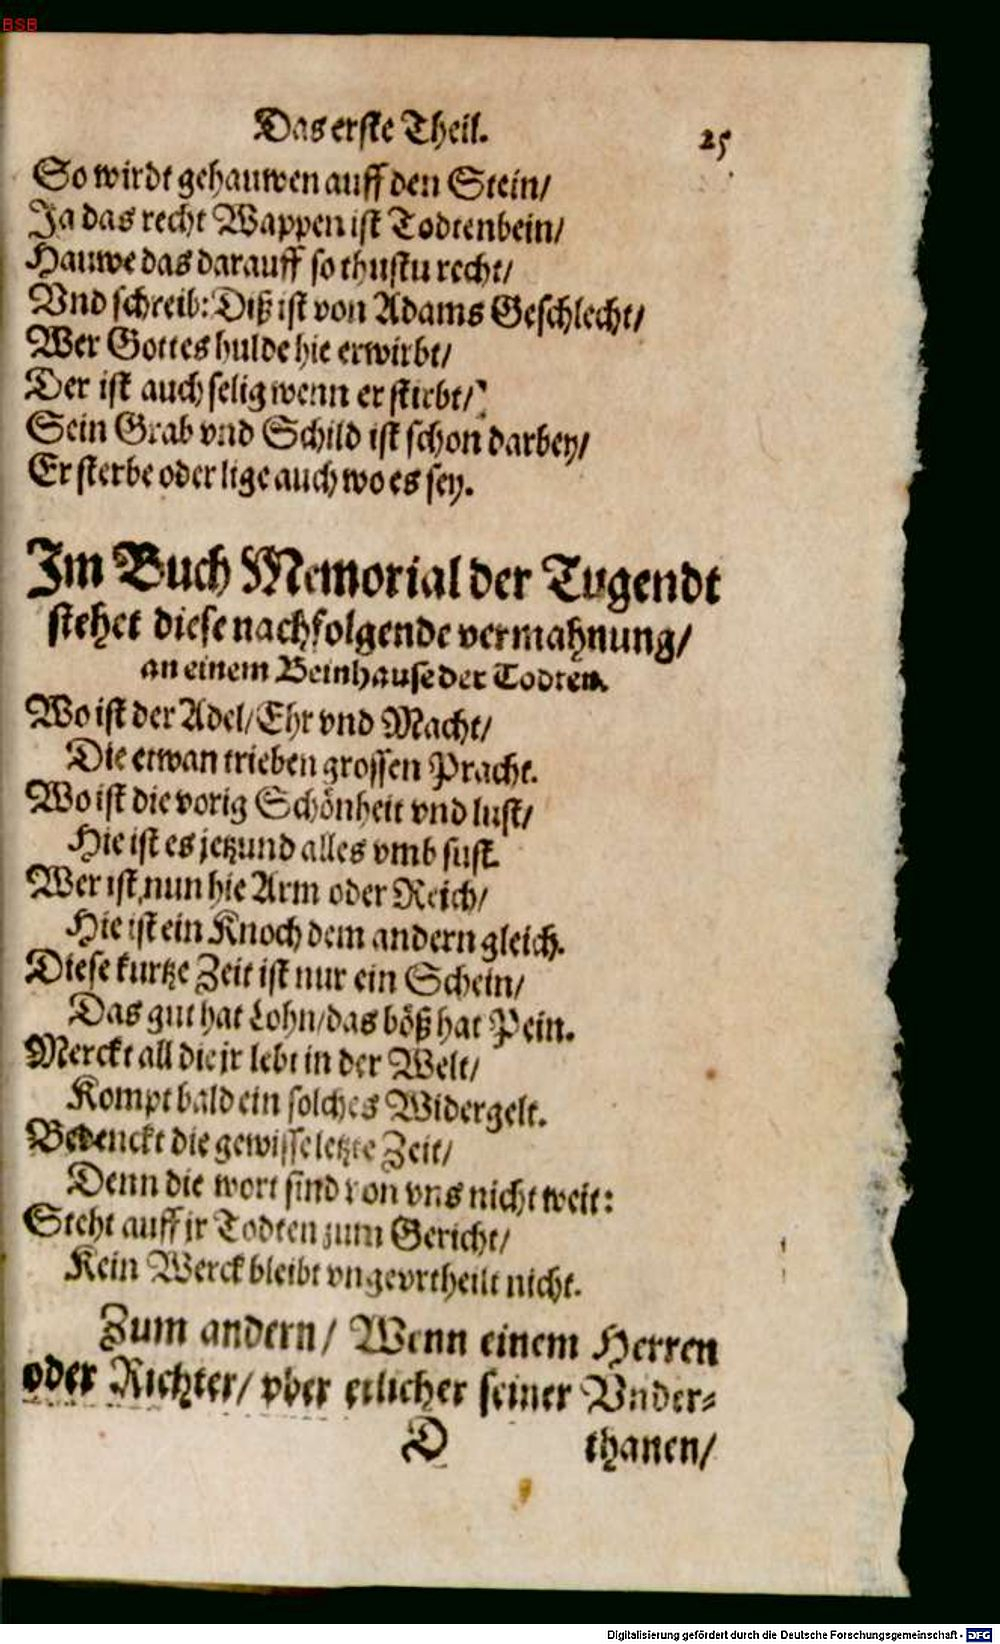 BSB
Das erste Theil. 25
So wirdt gehauwen auff den Stein/
Ja das recht Wappen ist Todtenbein/
Hauwe das darauff so thustu recht/
Vnd schreib: Diß ist von Adams Geschlecht/
Wer Gottes hulde hie erwirbt/
Der ist auch selig wenn er stirbt/
Sein Grab vnd Schild ist schon darbey/
Er sterbe oder lige auch wo es sey.
Im Buch Memorial der Tugendt
stehet diese nachfolgende vermahnung/
an einem Beinhause der Todten.
Wo ist der Adel/ Ehr vnd Macht/
Die etwan trieben grossen Pracht.
Wo ist die vorig Schönheit vnd lust/
Hie ist es jetzund alles vmb sust.
Wer ist nun hie Arm oder Reich/
Hie ist ein Knoch dem andern gleich.
Diese kurtze Zeit ist nur ein Schein/
Das gut hat Lohn/ das böß hat Pein.
Merckt all die jr lebt in der Welt/
Kompt bald ein solches Widergelt.
Bedenckt die gewisse letzte Zeit/
Denn die wort sind von vns nicht weit:
Steht auff jr Todten zum Gericht/
Kein Werck bleibt vngevrtheilt nicht.
Zum andern/ Wenn einem Herren
oder Richter/ vber etlicher seiner Vnder-
D thanen/
Digitalisierung gefördert durch die Deutsche Forschungsgemeinschaft - DFG